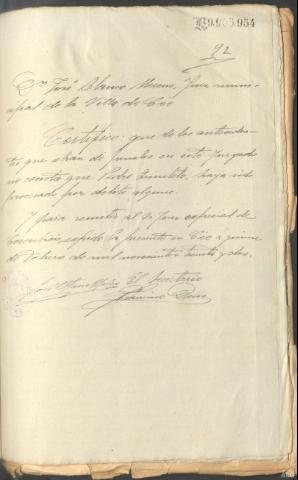 92
Dn José Alamo Moreno, Juez muni-
cipal de la Villa de
Certifico: que de los anteceden-
tes que obran de penales en este Juzgado
no consta que Pedro haya sido
procesado por delito alguno.
Y para remitir al Sr Juez especial de
expido la presente en a quince
de Febrero de mil novecientos treinta y dos.
El Secretario